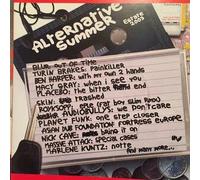 Alternative
Summer
Estate
2003
BLUR: OUT OF TIME
TURIN BRAKES: PAINKILLER
BEN HARPER: with my own 2 hands
MACY GRAY: when i see you
PLACEBO: the bitter end
SKIN: trashed
ROYKSOPP: eple (fat boy slim remix)
AUDIOBULLYS: we don't care
PLANET FUNK: one step closer
ASIAN DUB FOUNDATION: FORTRESS EUROPE
NICK CAVE: bring it on
MASSIVE ATTACK: special cases
MARLENE KUNTZ: notte
and many more...